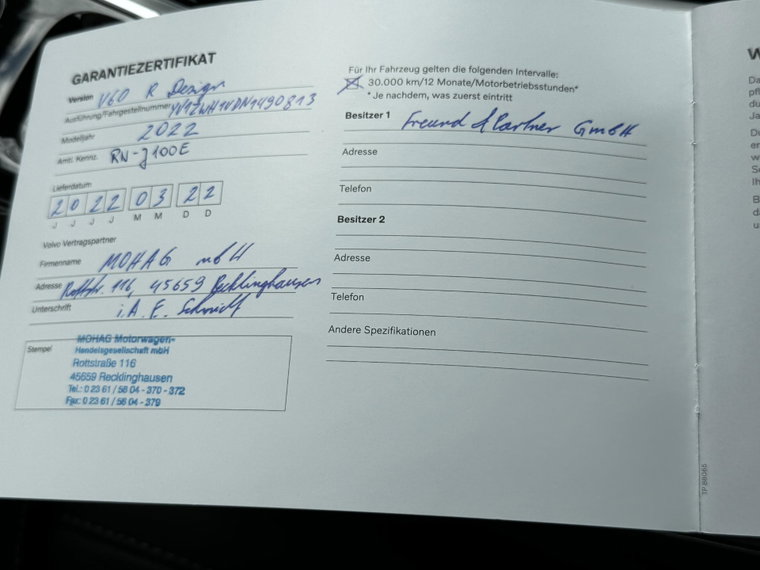 GARANTIEZERTIFIKAT
Version V60 R Design
Ausführung/Fahrgestellnummer YV1ZWH1VDN1490813
Modelljahr 2022
Amtl. Kennz. RN-J100E
Lieferdatum
2 0 2 2 0 3 2 2
J J J J M M D D
Volvo Vertragspartner
Firmenname MOHAG mbH
Adresse Rottstr. 116, 45659 Recklinghausen
Unterschrift i.A. E. Schmidt
Stempel
MOHAG Motorwagen-
Handelsgesellschaft mbH
Rottstraße 116
45659 Recklinghausen
Tel.: 0 23 61 / 58 04 - 370 - 372
Fax: 0 23 61 / 58 04 - 379
Für Ihr Fahrzeug gelten die folgenden Intervalle:
30.000 km/12 Monate/Motorbetriebsstunden*
* Je nachdem, was zuerst eintritt
Besitzer 1 Freund & Partner GmbH
Adresse
Telefon
Besitzer 2
Adresse
Telefon
Andere Spezifikationen